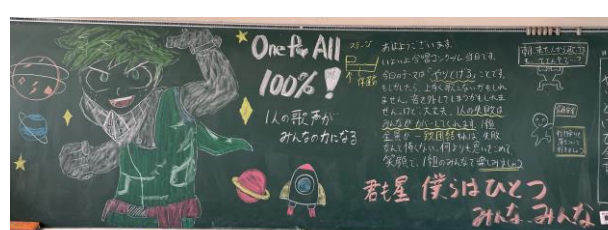 One For All
100%!
1人の歌声が
みんなの力になる
ステージ
おはようございます。
いよいよ合唱コンクール当日です。
今日のテーマは「やりとげる」ことです。
もしかしたら、上手く歌えないかもしれ
ません。音を外してしまうかもしれま
せん。けど、大丈夫。1人の失敗は
みんながカバーしてくれます。1組
全員が
失敗
なんて怖くない。何よりも思いをこめて
笑顔で、1組のみんなで楽しみましょう
君も星 僕らはひとつ
みんな みんな